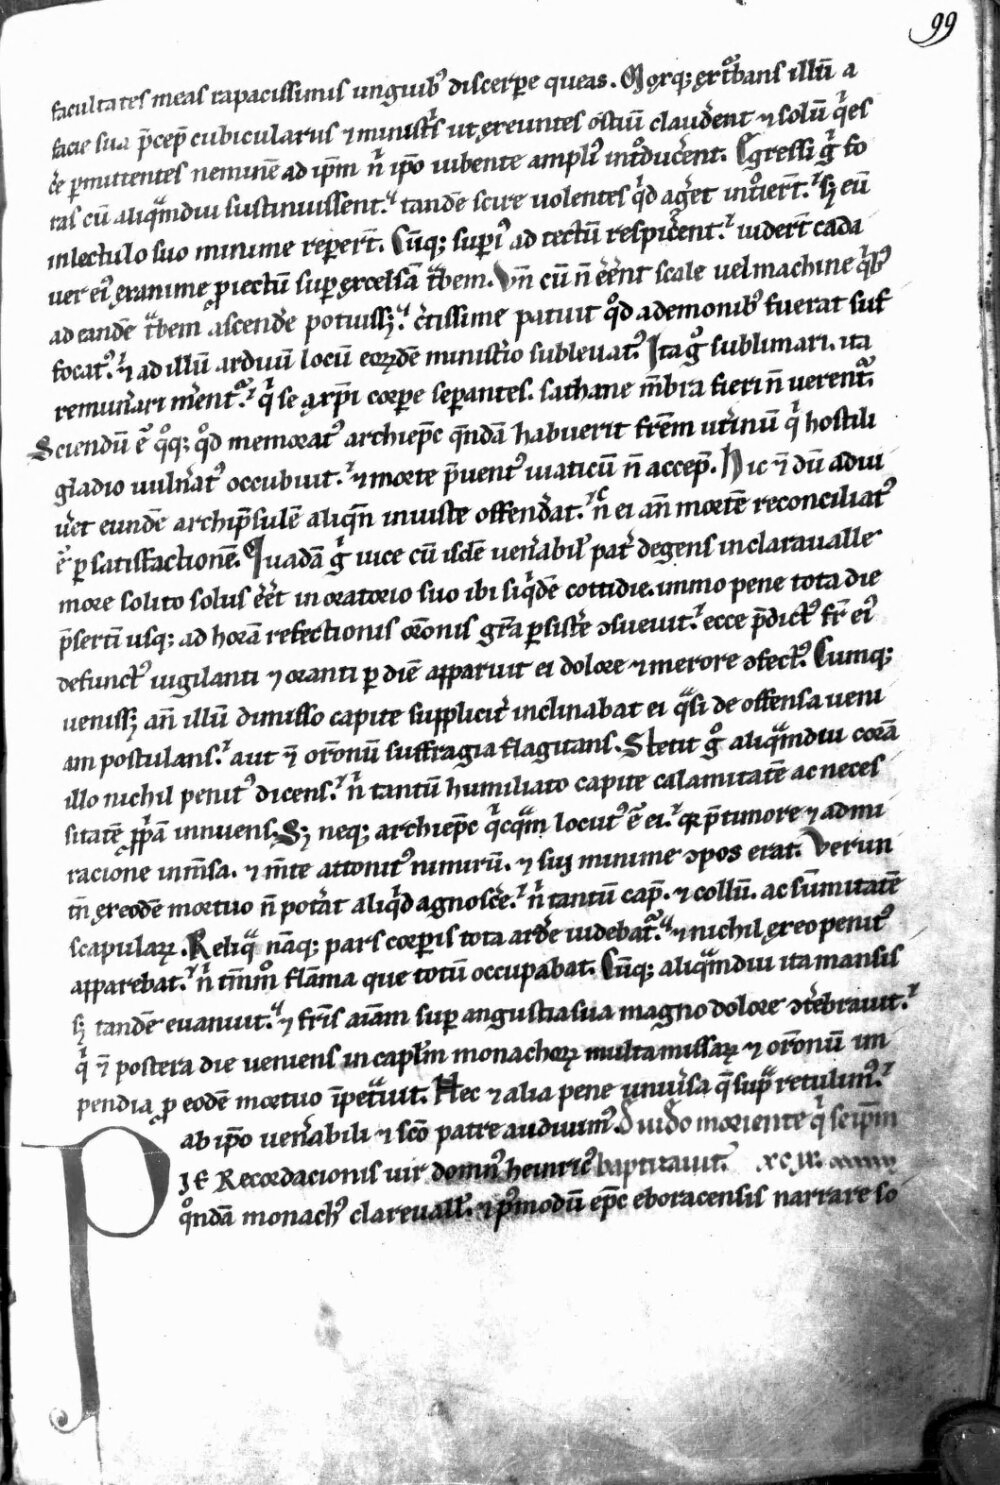 99
facultates meas rapacissimis unguibꝰ discerꝑe queas. Mox qꝫ exturbans illū a
facie sua p̄cep̄ cubiculariis ⁊ ministˢ ut exeuntes ostiū clauderent ⁊ solū qͥes
cͤe ꝑmittentes neminē ad ip̄m nͥ ip̄o iubente ampliꝰ intͦducerent. Egressi gͥ fo
ras cū aliqͣmdiu sustinuissent. tandē scire uolentes qͥd ageret intͦierūt. sꝫ eū
in lectulo suo minime reperer̄t. Cūqꝫ superiꝰ ad tectū respicerent. uider̄t cada
uer eiꝰ exanime ꝓiectū super excelsā tͣbem. Vn̄ cū n̄ eēnt scale uel machine qͥbꝰ
ad eandē tͣbem ascendere potuissꝫ. certissime patuit qͦd a demonibꝰ fuerat suf
focatꝰ. ⁊ ad illū arduū locū eoꝝdē ministerio subleuatꝰ. Ita gͦ sublimari. ita
remunerari merentᷣ. qͥ se a xp̄i corꝑe seꝑantes. sathane mēbra fieri n̄ uerentᷣ.
Sciendū ē qͦqꝫ qͦd memoratꝰ archiep̄c qͣendā habuerit fr̄em uterinū qͥ hostili
gladio uulneratꝰ occubuit. ⁊ morte p̄uentꝰ uiaticū n̄ accep̄. Hic ⁊ dū adui
ueret eundē archip̄sulē aliqn̄ iniuste offenderat. nͨ ei an̄ mortē reconciliatꝰ
ē ꝑ satisfactionē. Quadā gͥ uice cū isdē uenerabil̓ pater degens in claraualle
more solito solus eēt in oratorio suo ibi siqͥdē cottidie. immo pene tota die
p̄sertī usqꝫ ad horā refectionis or̄onis gr̄a ꝑsistere ɔsueuit. ecce p̄dictꝰ fr̄ eiꝰ
defunctꝰ uigilanti ⁊ oranti ꝑ diē apparuit ei dolore ⁊ merore ɔfectꝰ. Cumqꝫ
uenissꝫ an̄ illū dimisso capite supplicit̓ inclinabat ei qͣsi de offensa ueni
am postulans. aut ⁊ or̄onū suffragia flagitans. Stetit gͦ aliqͣmdiu corā
illo nichil penitꝰ dicens. nͥ tantū humiliato capite calamitatē ac neces
sitatē ꝓpͥā innuens. Sꝫ neqꝫ archiep̄c qͥcqͣm locutꝰ ē ei. qꝛ p̄ timore ⁊ admi
racione inm̄sa. ⁊ m̄te attonitꝰ nimirū. ⁊ sui minime ɔpos erat. Verun
tn̄ ex eodē mortuo n̄ poterat aliqͥd agnoscere. nͥ tantū cap̄. ⁊ collū. ac sūmitatē
scapularꝝ. Reliqͣ nāqꝫ pars corꝑis tota ardere uidebatᷣ. ⁊ nichil ex eo penitꝰ
apparebat. nͥ tm̄mͦ flāma que totū occupabat. Cūqꝫ aliqͣmdiu ita mansis
sꝫ tandē euanuit. ⁊ fr̄is aīam super angustia sua magno dolore ɔtͥebrauit.
qͥ ⁊ postera die ueniens in capl̄m monachoꝝ multa missaꝝ ⁊ or̄onū im
pendia ꝓ eodē mortuo īpetͣuit. Hec ⁊ alia pene uniuersa q̄ supͣ retulimꝰ.
ab ip̄o uenerabili ⁊ sc̄o patre audiuimꝰ. De iudeo moriente qͥ seip̄m
IE Recordacionis uir domnꝰ heinricꝰ baptizauit.
qͦndā monachꝰ clareuall̓. ⁊ pꝰmodū ep̄c eboracensis narrare so